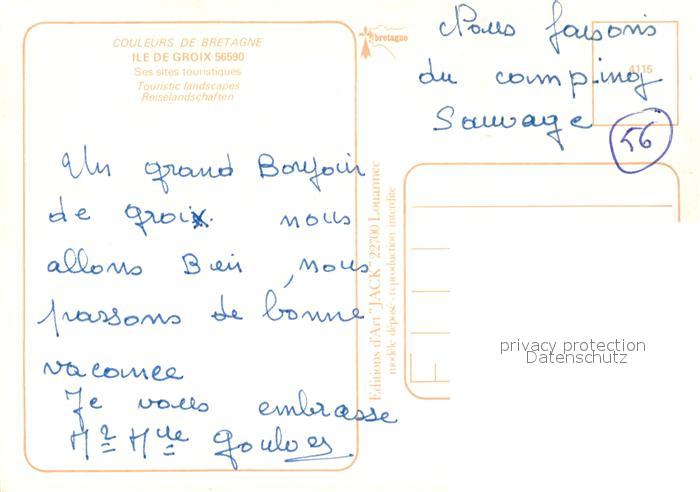 COULEURS DE BRETAGNE
ILE DE GROIX 56590
Ses sites touristiques
Touristic landscapes
Reiselandschaften
bretagne
4115
Nous faisons
du camping
Sauvage
56
Un grand Bonjoir
de groix. nous
allons Bien, nous
passons de bonne
vacance
Je vous embrasse
Mr Mme
Editions d'Art "JACK" 22700 Louannec
modèle déposé - reproduction interdite
privacy protection
Datenschutz